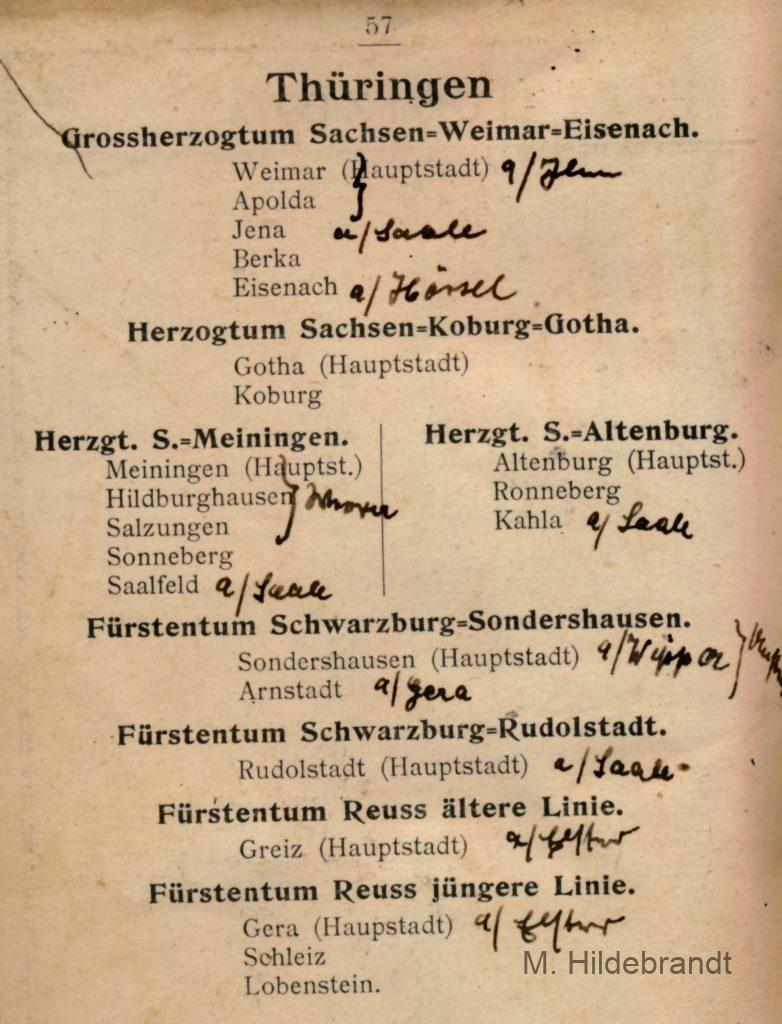 57
Thüringen
Grossherzogtum Sachsen=Weimar=Eisenach.
Weimar (Hauptstadt) a/Ilm
Apolda
Jena a/Saale
Berka
Eisenach a/Hörsel
Herzogtum Sachsen=Koburg=Gotha.
Gotha (Hauptstadt)
Koburg
Herzgt. S.=Meiningen.
Meiningen (Hauptst.)
Hildburghausen Werra
Salzungen
Sonneberg
Saalfeld a/Saale
Herzgt. S.=Altenburg.
Altenburg (Hauptst.)
Ronneberg
Kahla a/Saale
Fürstentum Schwarzburg=Sondershausen.
Sondershausen (Hauptstadt) a/Wipper
Arnstadt a/Gera
Fürstentum Schwarzburg=Rudolstadt.
Rudolstadt (Hauptstadt) a/Saale
Fürstentum Reuss ältere Linie.
Greiz (Hauptstadt) a/Elster
Fürstentum Reuss jüngere Linie.
Gera (Haupstadt) a/Elster
Schleiz
Lobenstein.
M. Hildebrandt